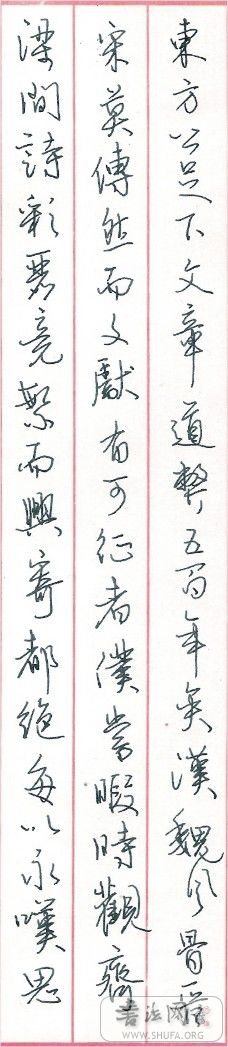 東方公足下文章道弊五百年矣漢魏風骨晉
宋莫傳然而文獻有可征者僕嘗暇時觀齊
梁間詩彩麗竞繁而興寄都絕每以永嘆思
書法网
WWW.SHUFA.ORG